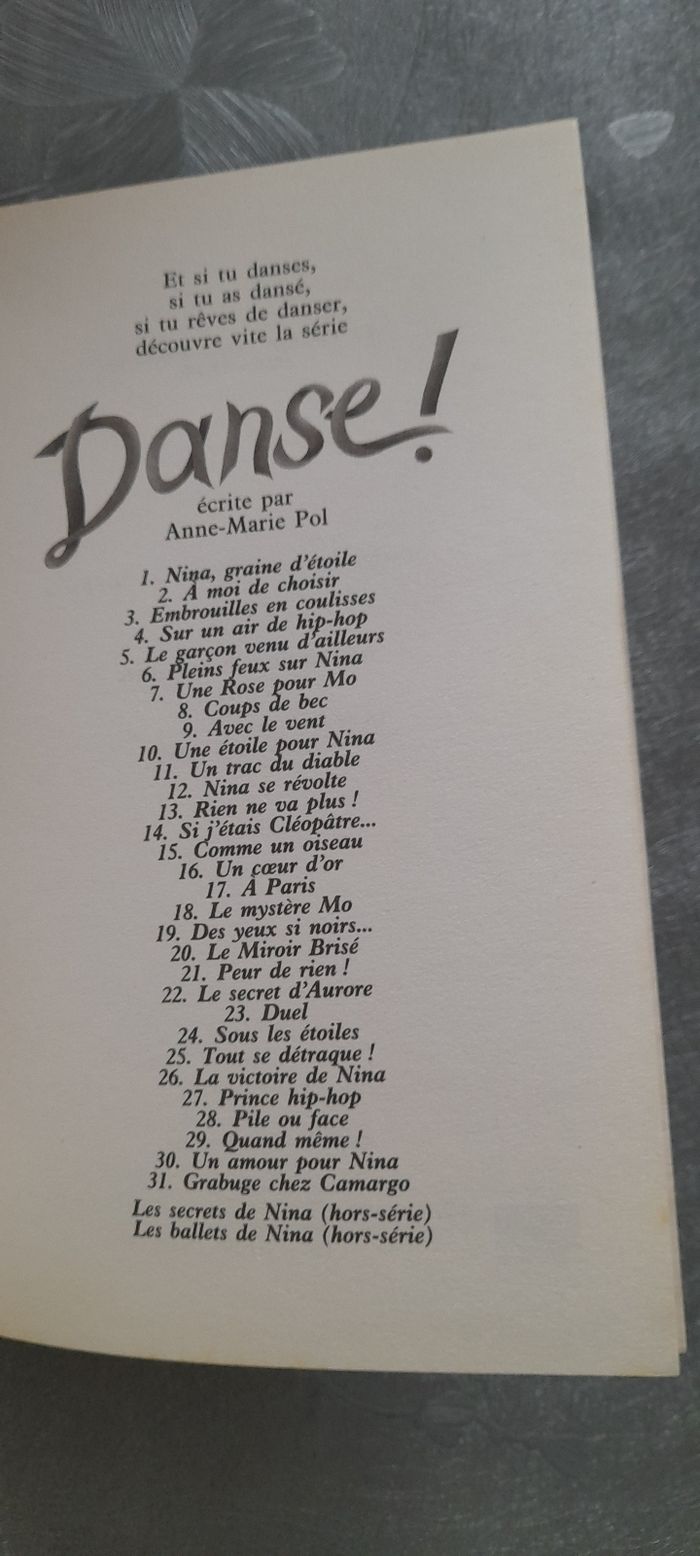 Et si tu danses,
si tu as dansé,
si tu rêves de danser,
découvre vite la série
Danse !
écrite par
Anne-Marie Pol
1. Nina, graine d'étoile
2. À moi de choisir
3. Embrouilles en coulisses
4. Sur un air de hip-hop
5. Le garçon venu d'ailleurs
6. Pleins feux sur Nina
7. Une Rose pour Mo
8. Coups de bec
9. Avec le vent
10. Une étoile pour Nina
11. Un trac du diable
12. Nina se révolte
13. Rien ne va plus !
14. Si j'étais Cléopâtre...
15. Comme un oiseau
16. Un cœur d'or
17. À Paris
18. Le mystère Mo
19. Des yeux si noirs...
20. Le Miroir Brisé
21. Peur de rien !
22. Le secret d'Aurore
23. Duel
24. Sous les étoiles
25. Tout se détraque !
26. La victoire de Nina
27. Prince hip-hop
28. Pile ou face
29. Quand même !
30. Un amour pour Nina
31. Grabuge chez Camargo
Les secrets de Nina (hors-série)
Les ballets de Nina (hors-série)